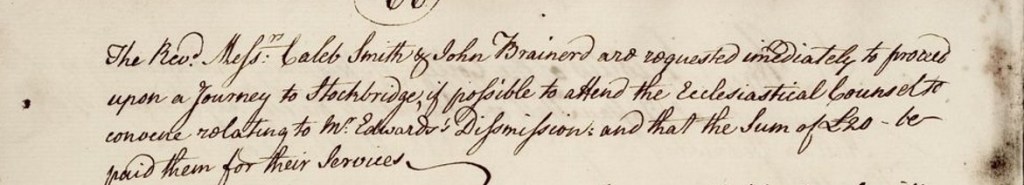 The Revd. Messrs. Caleb Smith & John Brainerd are requested imediately to proceed
upon a Journey to Stockbridge, if possible to attend the Ecclesiastical Counsel to
convene relating to Mr. Edwards's Dissmission: and that the Sum of £20 - be
paid them for their Services.